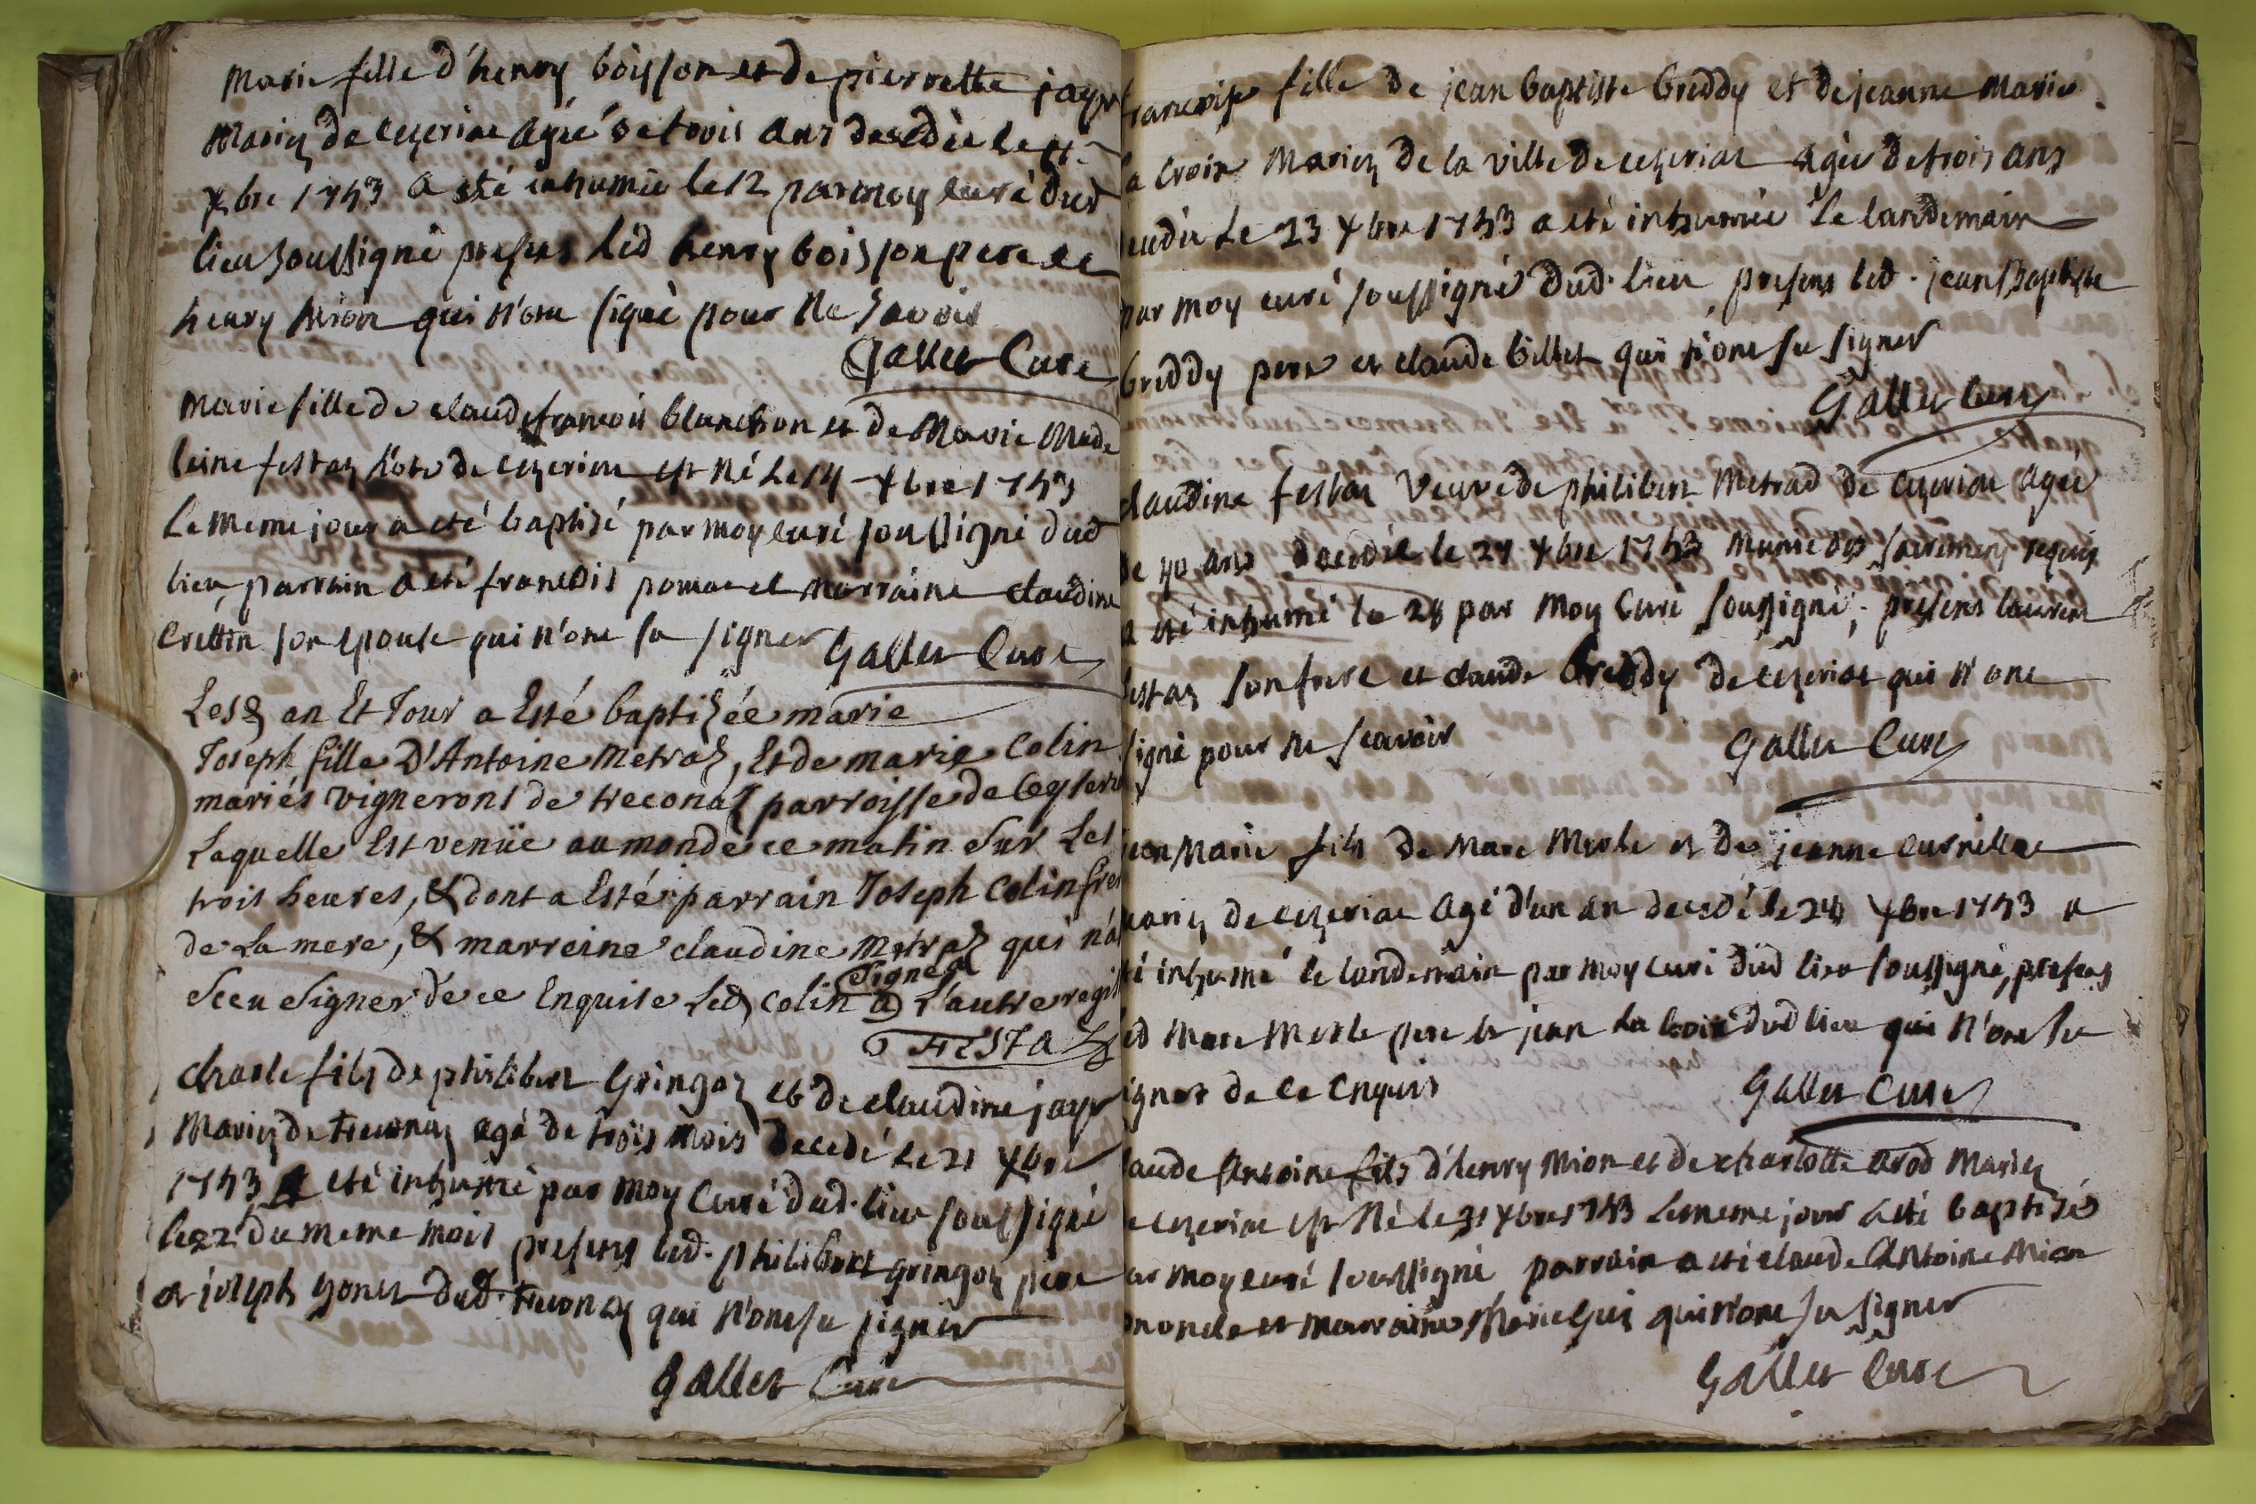 Marie fille d'henry boisson et de pierrette jayr
Mariez de ceyzeriac agée de trois ans decedée le 11
xbre 1753 a eté inhumée le 12 par moy curé dud
lieu soussigné presens led henry boisson pere et
henry mion qui n'ont signé pour ne savoir
Gallet Curé
Marie fille de claude françois blanchon et de Marie Made
leine festaz hôte de ceyzeriac est né le 14 xbre 1753
le meme jour a eté baptisé par moy curé soussigné dud
lieu, parrain a eté francois et marraine claudine
crettin son epouse qui n'ont su signer Gallet Curé
Lesd an Et Jour a Esté baptizée marie
Joseph fille D'Antoine Metraz, Et de marie Colin
mariés vignerons de treconaz parroisse de Ceyseria
Laquelle Est venüe au monde ce matin sur Les
trois heures, & dont a Esté parrain Joseph Colin frer
de La mere, & marreine claudine Metraz qui n'a
Sceu signer de ce Enquise Led Colin a signé L'autre regis
FESTAZ
charle fils de philibert Gringoz et de claudine jayr
Mariez de treconaz agé de trois mois decedé le 21 xbre
1753 a eté inhumé par moy Curé dud. lieu soussigné
le 22 du meme mois presens led. philibert gringoz pere
et joseph gonet dud. treconaz qui n'ont su signer
Gallet Curé
rancoise fille de jean baptiste breddy et de jeanne Marie
a croix Mariez de la ville de ceyzeriac agée de trois ans
ecedée le 23 xbre 1753 a eté inhumée le landemain
par moy curé soussigné dud. lieu presens led. jean Baptiste
breddy pere et claude billet qui n'ont su signer
Gallet Curé
claudine festaz veuve de philibert Metrad de ceyzeriac agée
de 70 ans decedée le 27 xbre 1753 munie des sacremens requis
a eté inhumé le 28 par moy Curé soussigné, presens laurent
festaz son frere et claude breddy de ceyzeriac qui n'ont
signé pour ne scavoir Gallet Curé
jean Marie fils de Marc Merle et de jeanne curnillac
mariez de ceyzeriac agé d'un an decedé le 28 xbre 1753 a
eté inhumé le landemain par moy curé dud lieu soussigné, presens
led Marc Merle pere et jean La croix dud lieu qui n'ont su
signer de ce enquis Gallet Curé
laude Antoine fils d'henry Mion et de charlotte arod Mariez
e ceyzeriac est Né le 31 xbre 1753 le meme jour a eté baptisé
par moy curé soussigné parrain a eté claude Antoine Mion
on oncle et marraine Marie qui n'ont su signer
Gallet Curé